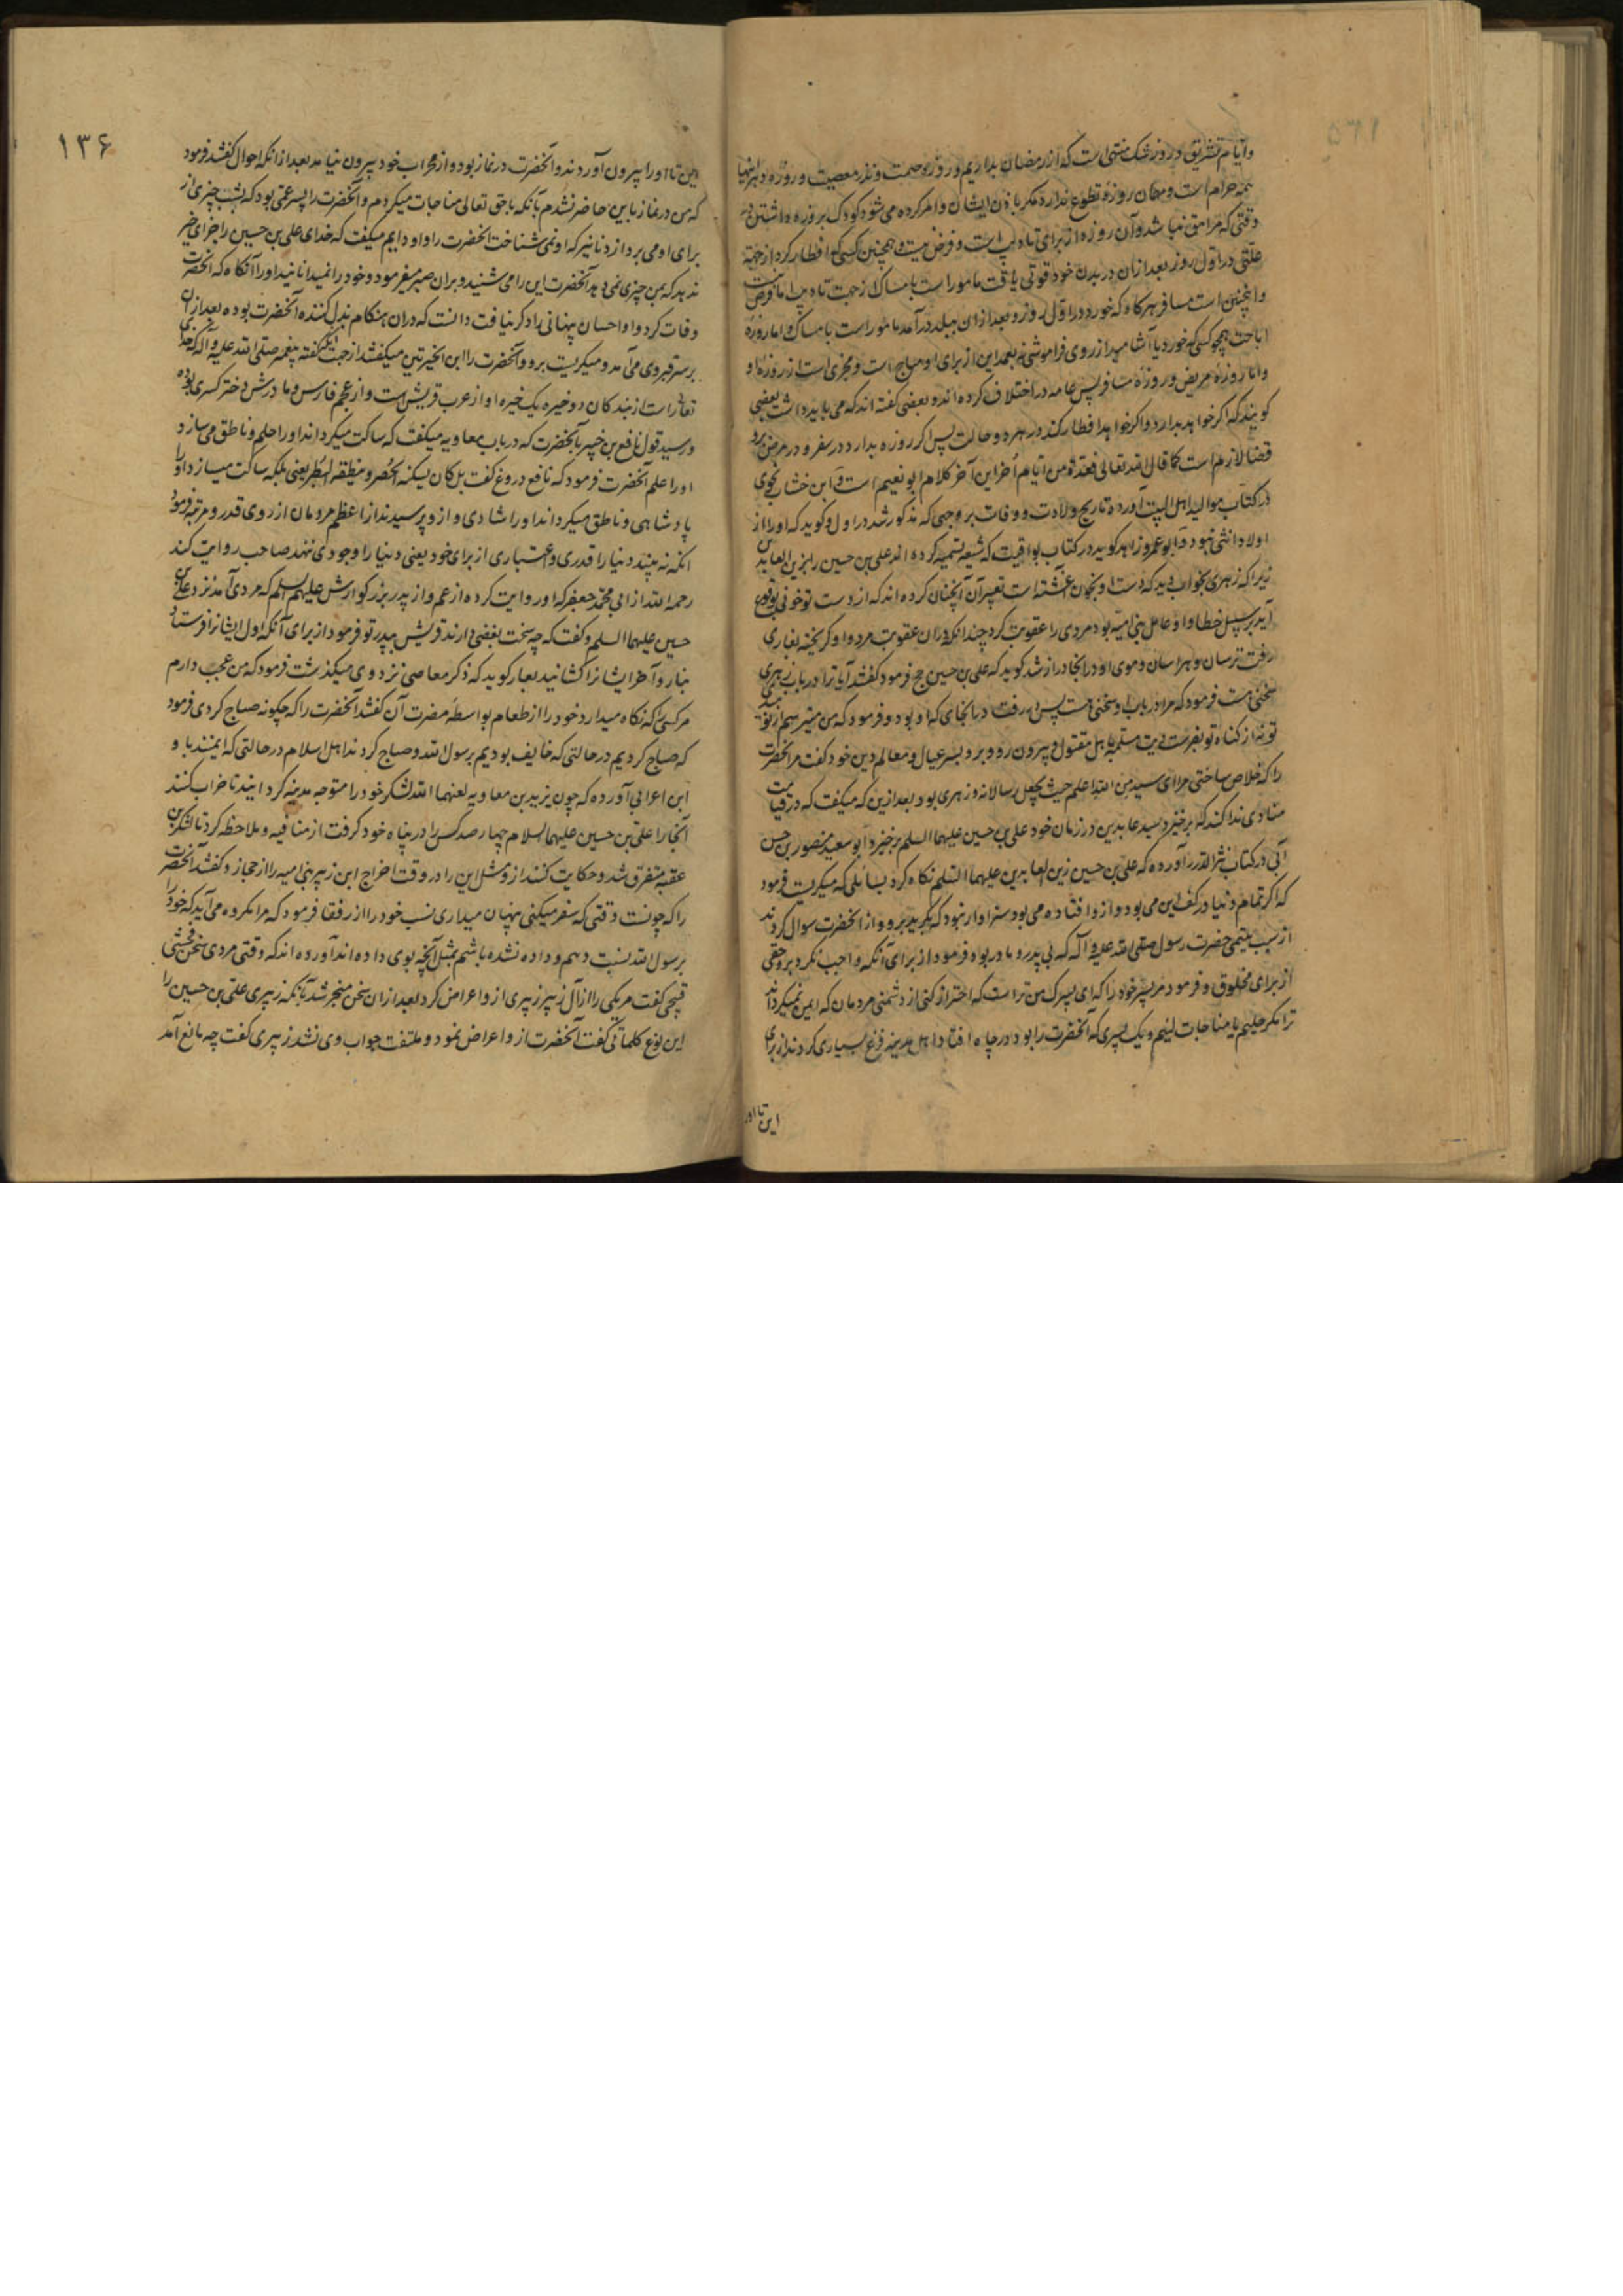 وایام تشریق و روز شک منتهی است که از رمضان بداریم و روزه صمت و نذر معصیت و روزه دهر اینها
همه حرام است و مهمان روزه تطوع ندارد مکر باذن ایشان و امر کرده می شود کودک بروزه داشتن
وقتی که مراهق نباشد و آن روزه از برای تادیب است و فرض نیست و همچنین کسی که افطار کرد از جهة
علتی در اول روز بعد از آن در بدن خود قوتی یافت مامور است بامساک از جهت تادیب اما فرض نیست
و اینچنین است مسافر هرکاه که خورد در اول روز و بعد از ان ببلد در آمد مامور است بامساک و اما روزه
اباحت همچو کسی که خورد یا آشامید از روی فراموشی نه بعمد این از برای او مباح است و مجزی است از روزه او
و اما روزه مریض و روزه مسافر پس عامه در اختلاف کرده اند و بعضی کفته اند که می باید داشت بعضی
کویند که اگر خواهد بدارد و اکر خواهد افطار کند در هر دو حالت پس اکر روزه بدارد در سفر و در مرض برو
قضا لازم است کما قال الله تعالی فعدة من ایام اخر این آخر کلام ابو نعیم است و ابن خشاب نحوی
در کتاب موالید اهل البیت آورده تاریخ ولادت و وفات بر وجهی که مذکور شد در اول و کوید که او را از
اولاد انثی نبود و ابو عمرو زاهد کوید در کتاب یواقیت که شیعه تسمیه کرده اند علی بن حسین را بزین العابدین
زیرا که زهری بخواب دید که دست او بخون آغشته است تعبیر آن آنچنان کرده اند که از دست تو خونی بوقوع
آید بر سبیل خطا و او عامل بنی امیه بود مردی را عقوبت کرد چندانکه در ان عقوبت مرد و او کریخته بغاری
رفت ترسان و هراسان و موی او در انجا دراز شد کوید که علی بن حسین حج فرمود کفتند آیا ترا در باب زهری
سخنی هست فرمود که مرا در باب او سخنی هست پس او رفت در انجای که او بود و فرمود که من میترسم از نومیدی
تو نه از کناه تو بفرست دیت مسلمه باهل مقتول و بیرون رو و برو بسر عیال و معالم دین خود کفت مر انحضرت
را که خلاص ساختی مرا ای سید من الله اعلم حیث یجعل رسالاته و زهری بود بعد ازین که میکفت که در قیامت
منادی ندا کند که برخیزد سید عابدین در زمان خود علی بن حسین علیهما السلم برخیزد و ابو سعید منصور بن حسن
آبی در کتاب نثر الدرر آورده که علی بن حسین زین العابدین علیهما السلم نکاه کرد بسائلی که میکریست فرمود
که اگر تمام دنیا در کف این می بود و از و افتاده می بود سزاوار نبود که بکرید برو و از انحضرت سوال کردند
از سبب یتیمی حضرت رسول صلی الله علیه و آله که بی پدر و مادر بود فرمود از برای آنکه واجب نکردد برو حقی
از برای مخلوق و فرمود مر پسر خود را که ای پسرک من ترا است که احتراز کنی از دشمنی مردمان که ایمن نمیکرداند
ترا مکر حلیم یا مناجات لئیم و یک پسری که آنحضرت را بود در چاه افتاد اهل مدینه فزع بسیاری کردند از برای
این تا او را
۱۳۶
این تا او را بیرون آوردند و آنحضرت در نماز بود و از محراب خود بیرون نیامد بعد از انکه احوال کفتند فرمود
که من در نماز باین حاضر نشدم بآنکه با حق تعالی مناجات میکردم و آنحضرت را پسر عمی بود که بشب چیزی از
برای او می برد از دنانیر که او نمی شناخت انحضرت را و او دایم میکفت که خدای علی بن حسین را جزای خیر
ندهد که بمن چیزی نمی دهد آنحضرت این را می شنید و بران صبر میفرمود و خود را نمیدانانید او را آنکاه که انحضرت
وفات کرد و او احسان پنهانی را دکر نیافت دانست که دران هنکام بذل کننده آنحضرت بوده بعد از ان
بر سر قبر وی می آمد و میکریست برو و آنحضرت را ابن الخیرتین میکفتند از جهت آنکه کفته پیغمبر صلی الله علیه و آله که خدای
تعالی راست از بندکان دو خیره یک خیره او از عرب قریش است و از عجم فارس و مادرش دختر کسری بوده
و رسید قول نافع بن جبیر بآنحضرت که در باب معاویه میکفت که ساکت میکرداند او را حلم و ناطق می سازد
او را علم آنحضرت فرمود که نافع دروغ کفت بل کان یسکنه الحصر و ینطقه البطر یعنی بلکه ساکت میسازد او را
پادشاهی و ناطق میکرداند او را شادی و ازو پرسیدند از اعظم مردمان از روی قدر و مرتبه فرمود
انکه نه بیند دنیا را قدری و اعتباری از برای خود یعنی دنیا را وجودی ننهد صاحب روایت کند
رحمه الله از ابی محمد جعفر که او روایت کرده از عم و از پدر بزرکوارش علیهم السلم که مردی آمد نزد علی بن
حسین علیهما السلم و کفت که چه سخت بغضی دارند قریش بپدر تو فرمود از برای آنکه اول ایشانرا فرستاد
بنار و آخر ایشانرا کشانید بعار کوید که ذکر معاصی نزد وی میکذشت فرمود که من عجب دارم
مر کسی که نکاه میدارد خود را از طعام بواسطه مضرت آن کفتند آنحضرت را که چکونه صباح کردی فرمود
که صباح کردیم در حالتی که خایف بودیم برسول الله و صباح کردند اهل اسلام در حالتی که ایمنند باو
ابن اعرابی آورده که چون یزید بن معاویه لعنهما الله لشکر خود را متوجه مدینه کردانید تا خراب کنند
آنجا را علی بن حسین علیهما السلام چهار صد کس را در پناه خود کرفت از منافیه و ملاحظه کرد تا لشکر بن
عقبه متفرق شد و حکایت کنند از و مثل این را در وقت اخراج ابن زبیر بنی امیه را از حجاز و کفتند آنحضرت
را که چونست وقتی که سفر میکنی پنهان میداری نسب خود را از رفقا فرمود که مرا مکروه می آید که خود را
برسول الله نسبت دهم و داده نشده باشم بمثل آنچه بوی داده اند آورده اند که وقتی مردی سخن فحشی
قبیحی کفت مر یکی را از آل زبیر زبیری ازو اعراض کرد بعد از ان سخن منجر شد بآنکه زبیری علی بن حسین را
این نوع کلماتی کفت آنحضرت ازو اعراض نمود و ملتفت جواب وی نشد زبیری کفت چه مانع آمد